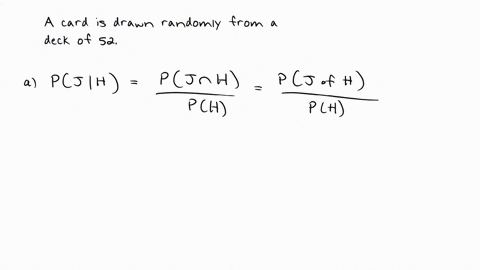 A card is drawn randomly from a
deck of 52.
a) P(J|H) = P(J∩H) / P(H) = P(J of H) / P(H)